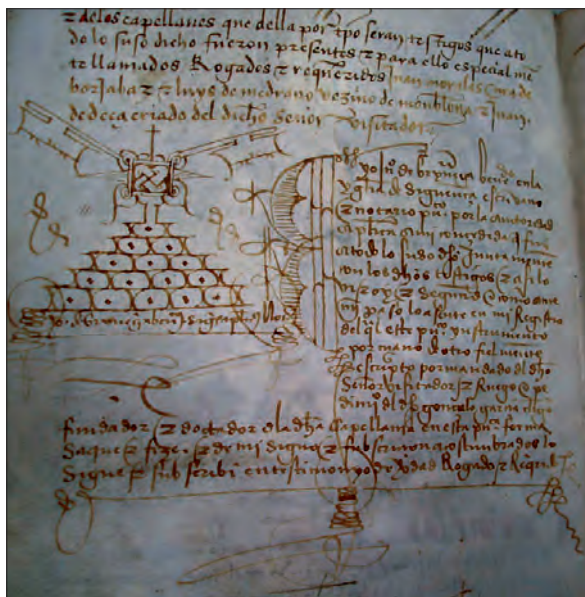 z de los capellanes que della por tpo seran testigos que a to
do lo suso dicho fueron presentes z para ello especial me
te llamados Rogados z requeridos Juan morales cura de
borjaba z luys de medrano vezino de montblona z juan
de deça criado del dicho señor visitador
yo jn de brynuega benefi en la
yglia de siguença escrivano
z notario pu por la autoridad
aplica a mi concedida q fuy
a todo lo suso dho juntamente
con los dhos testigos z asi lo
vi z oy z segund q como ante
mi paso lo asente en mi Registro
del ql este pu ynstrumento
por mano de otro fielmente
escripto por mandado del dho
Señor visitador z Ruego z pe
dimi del dho gonçalo garcia
fundador z doctador de la dha capellania en esta pu forma
Saque z fize z de mi signo z subscricion acostumbrados lo
Signe z subscribi en testimonyo de verdad Rogado z Requi